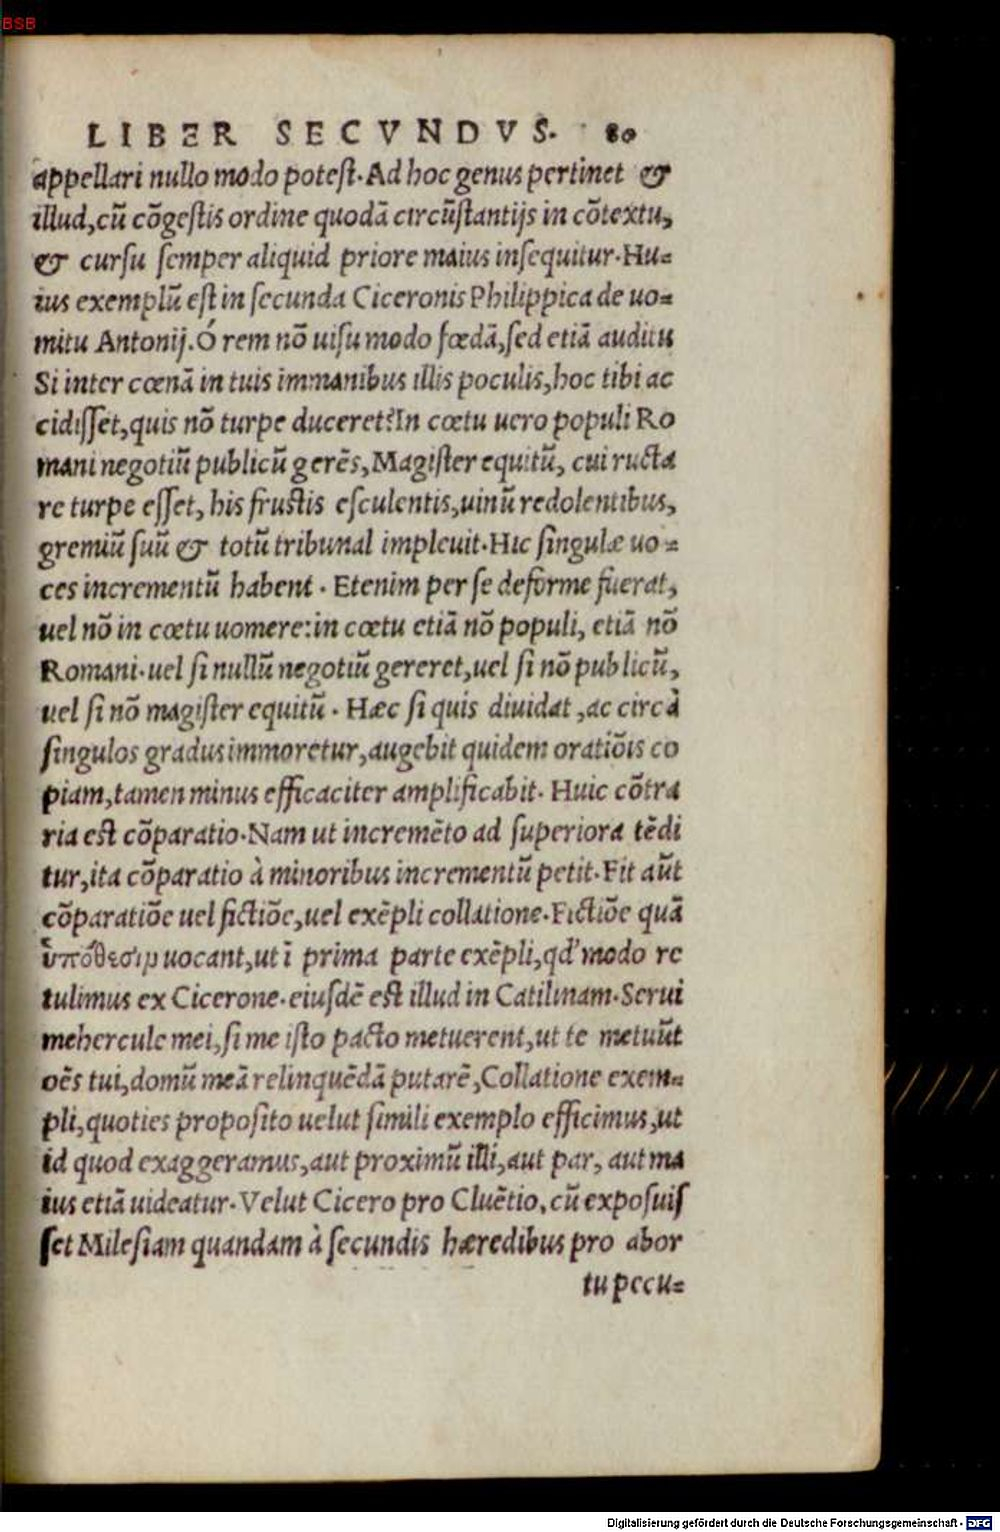 BSB
LIBER SECVNDVS. 80
appellari nullo modo potest. Ad hoc genus pertinet &
illud, cũ cõgestis ordine quodã circũstantijs in cõtextu,
& cursu semper aliquid priore maius insequitur. Hu=
ius exemplũ est in secunda Ciceronis Philippica de uo=
mitu Antonij. Ó rem nõ uisu modo fœdã, sed etiã auditu
Si inter cœnã in tuis immanibus illis poculis, hoc tibi ac
cidisset, quis nõ turpe duceret? In cœtu uero populi Ro
mani negotiũ publicũ gerẽs, Magister equitũ, cui ructa
re turpe esset, his frustis esculentis, uinũ redolentibus,
gremiũ suũ & totũ tribunal impleuit. Hic singulæ uo=
ces incrementũ habent. Etenim per se deforme fuerat,
uel nõ in cœtu uomere: in cœtu etiã nõ populi, etiã nõ
Romani. uel si nullũ negotiũ gereret, uel si nõ publicũ,
uel si nõ magister equitũ. Hæc si quis diuidat, ac circà
singulos gradus immoretur, augebit quidem oratiõis co
piam, tamen minus efficaciter amplificabit. Huic cõtra
ria est cõparatio. Nam ut incremẽto ad superiora tẽdi
tur, ita cõparatio à minoribus incrementũ petit. Fit aũt
cõparatiõe uel fictiõe, uel exẽpli collatione. Fictiõe quã
ὑπόθεσιμ uocant, ut ĩ prima parte exẽpli, qd' modo re
tulimus ex Cicerone. eiusdẽ est illud in Catilinam. Serui
mehercule mei, si me isto pacto metuerent, ut te metuũt
oẽs tui, domũ meã relinquẽdã putarẽ, Collatione exem=
pli, quoties proposito uelut simili exemplo efficimus, ut
id quod exaggeramus, aut proximũ illi, aut par, aut ma
ius etiã uideatur. Velut Cicero pro Cluẽtio, cũ exposuis
set Milesiam quandam à secundis hæredibus pro abor
tu pecu=
Digitalisierung gefördert durch die Deutsche Forschungsgemeinschaft - DFG